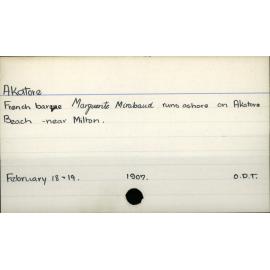 Akatore
French barque Marguerite Mirabaud runs ashore on Akatore
Beach - near Milton.
February 18 + 19. 1907. O.D.T.